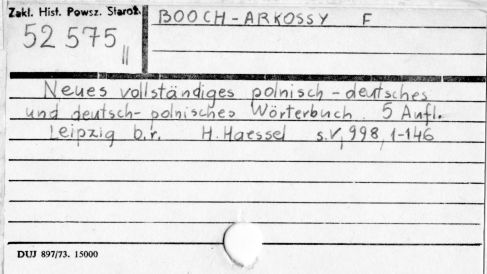 Zakl. Hist. Powsz. Staroż.
BOOCH-ARKOSSY F
52 575
II
Neues vollständiges polnisch-deutsches
und deutsch-polnisches Wörterbuch. 5 Aufl.
Leipzig b.r. H. Haessel s. V, 998, 1-146
DUJ 897/73. 15000